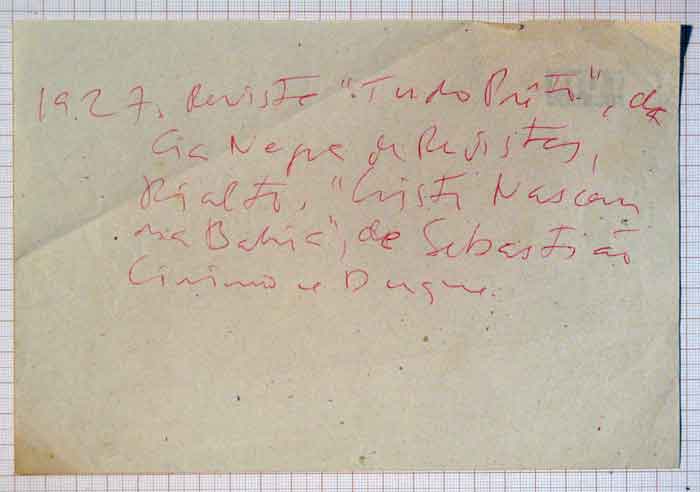 1927, Revista "Tudo Preto", da
Cia Negra de Revistas,
Rialto, "Cristo Nasceu
na Bahia", de Sebastião
Cirino e Duque.